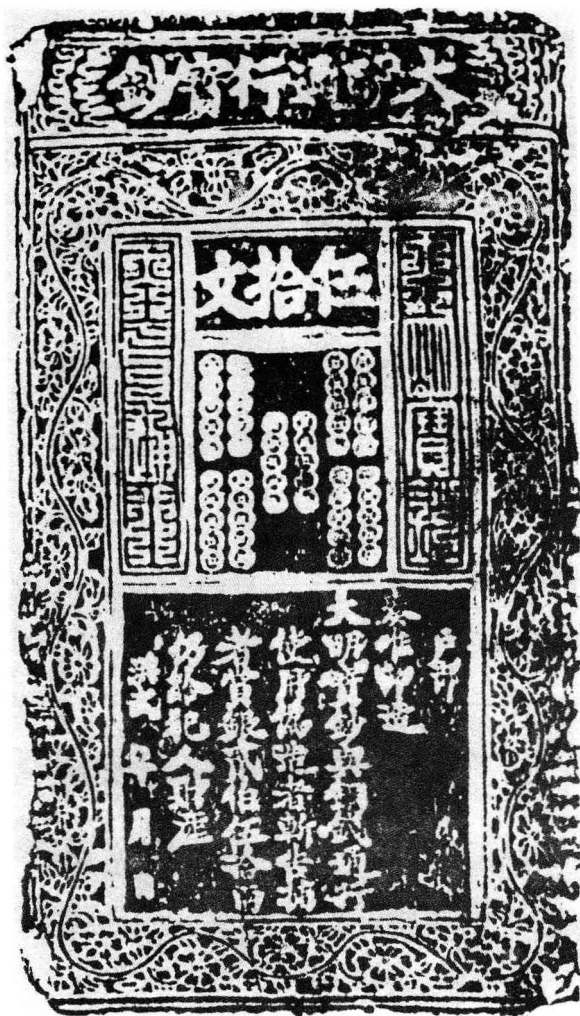 大明通行寶鈔
大明寶鈔
伍拾文
天下通行
户部
奏准印造
大明寶鈔與銅錢通行
使用偽造者斬告捕
者賞銀貳伯伍拾兩
仍給犯人財產
洪武 年 月 日